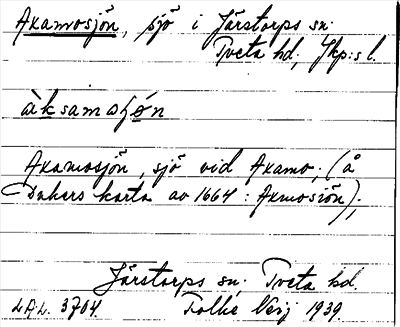 Axamosjön, sjö i Järstorps sn.
Tveta hd, Jkp:s l.
àksamoʃö́n
Axamosjön, sjö vid Axamo; (å
Dukers karta av 1664: Axmosiön);
Järstorps sn, Tveta hd.
L.A.L. 3704. Folke Neij 1939.